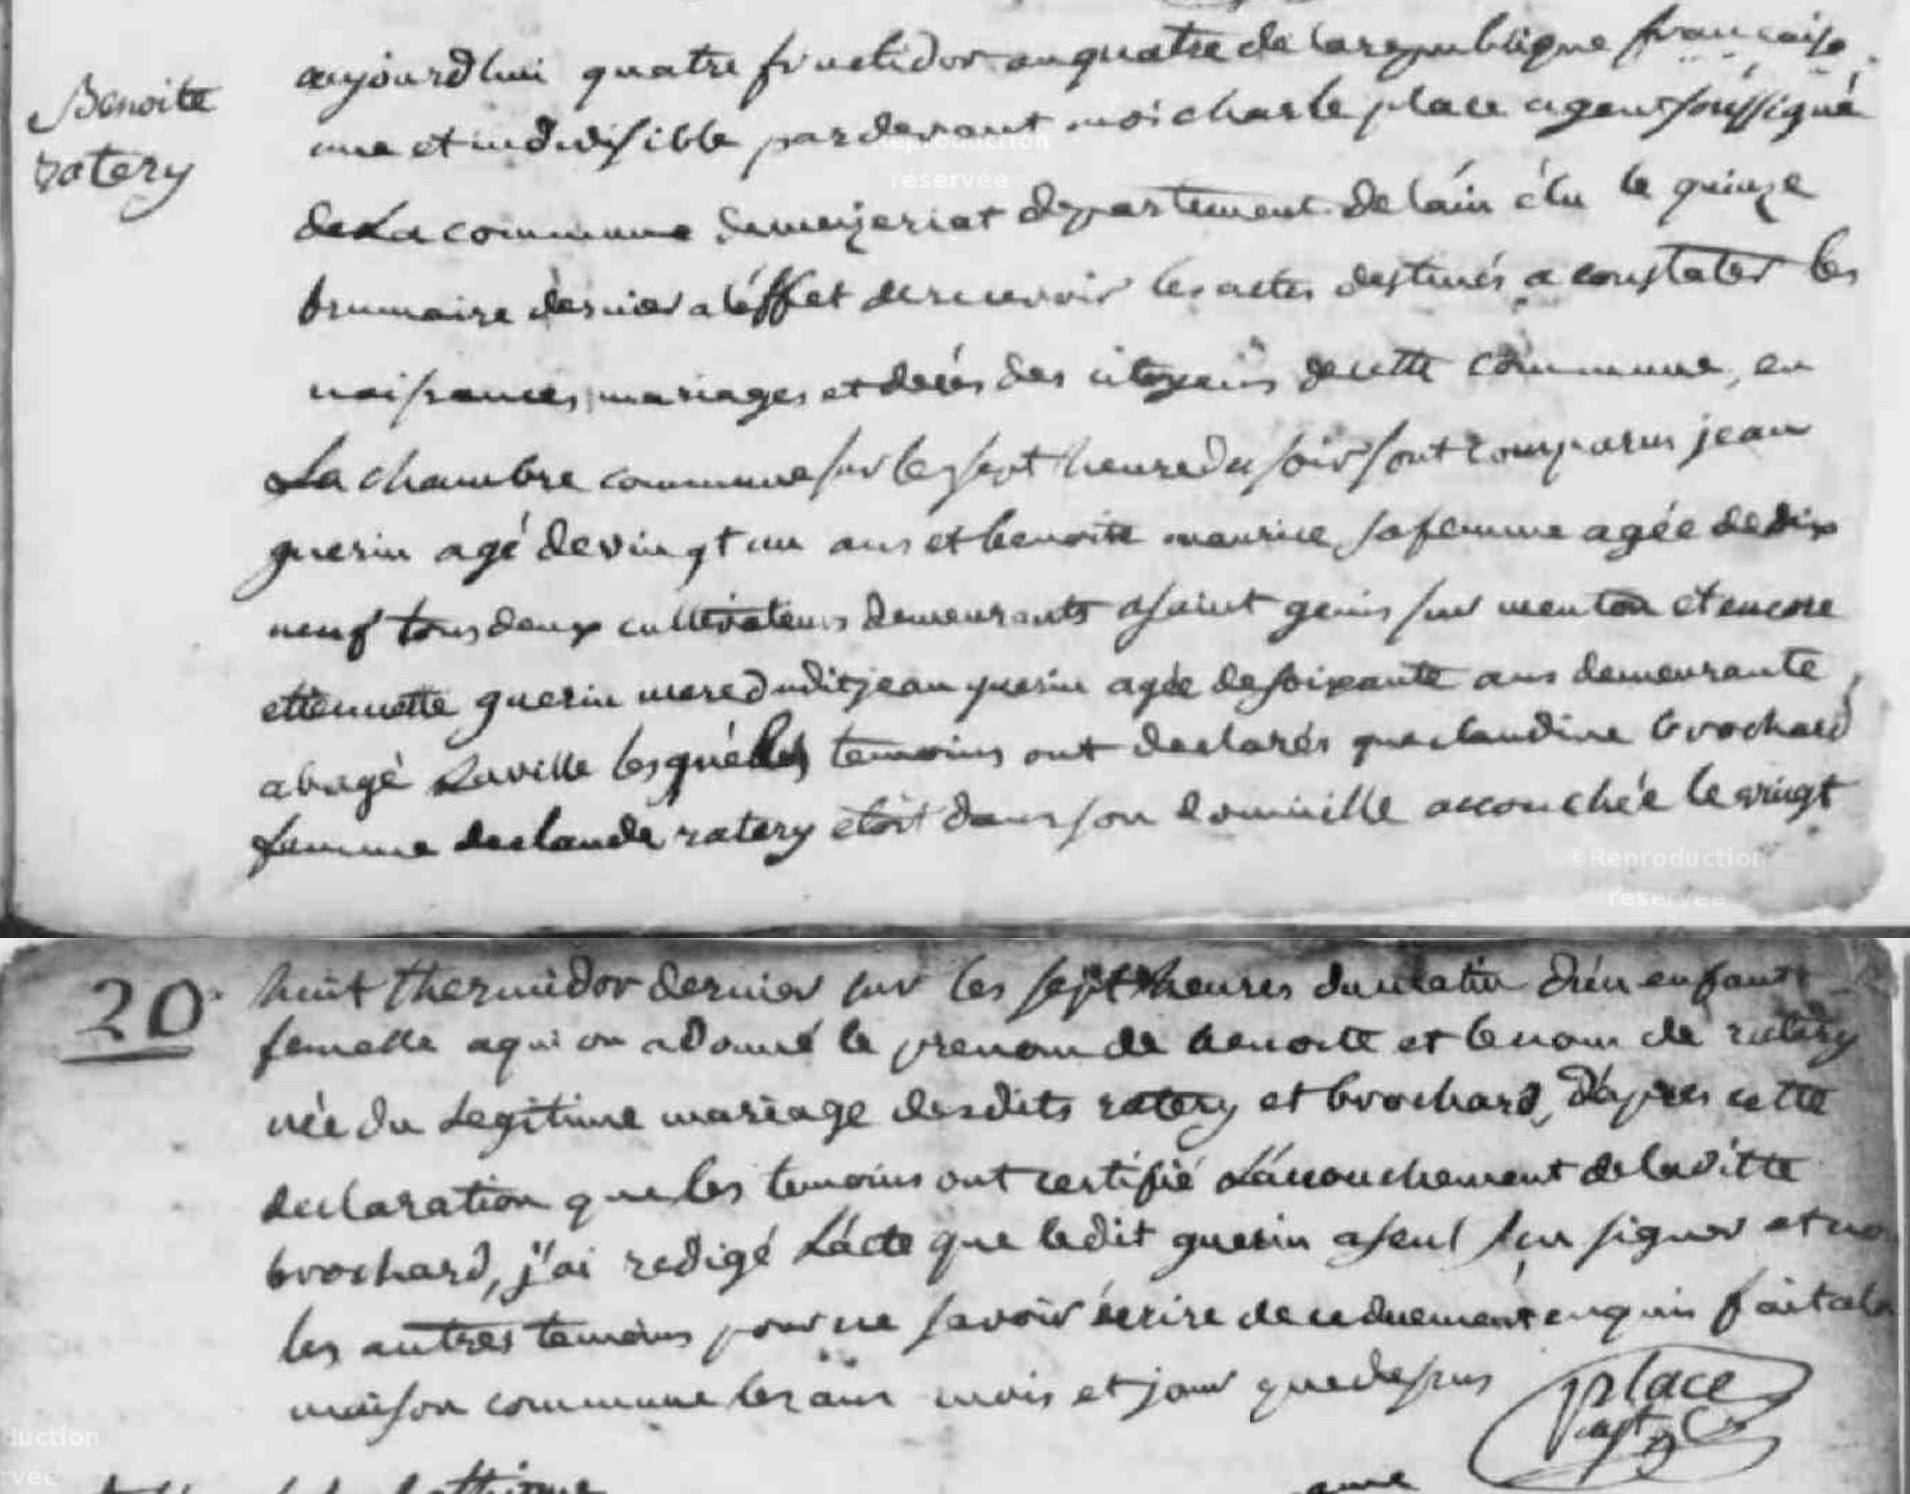 Benoite
ratery
aujourdhui quatre fructidor an quatre de la republique francaise
une et indivisible pardevant moi charle place agent soussigné
de La commune demezeriat departement de láin élu le quinze
brumaire dernier a léffet de recevoir les actes destinés a constater les
naissances, mariages et décés des citoyens de cette commune, en
La chambre commune sur le sept heure du soir sont comparus jean
guerin agé de vingt un ans et benoite maurice sa femme agée de dix
neuf tous deux cultivateurs demeurants a saint genis sur menton et encore
ettennette guerin mere dudit jean guerin agée de soixante ans demeurante
a bagé Laville lesquéles temoins ont declarés que claudine brochard
femme de claude ratery étoit dans son domicille accouchée le vingt
20
huit thermidor dernier sur les sept heures du matin d'un enfant
femelle a qui on a donné le prenom de benoite et le nom de ratery
née du Legitime mariage desdits ratery et brochard, dápres cette
declaration que les temoins ont certifié Láccouchement de laditte
brochard, j'ai redigé Lácte que ledit guerin a seul sçu signer et no
les autres temoins pour ne savoir écrire de ce duement enquis fait a la
maison commune les ans mois et jour que dessus
place
agt
©Reproduction
réservée